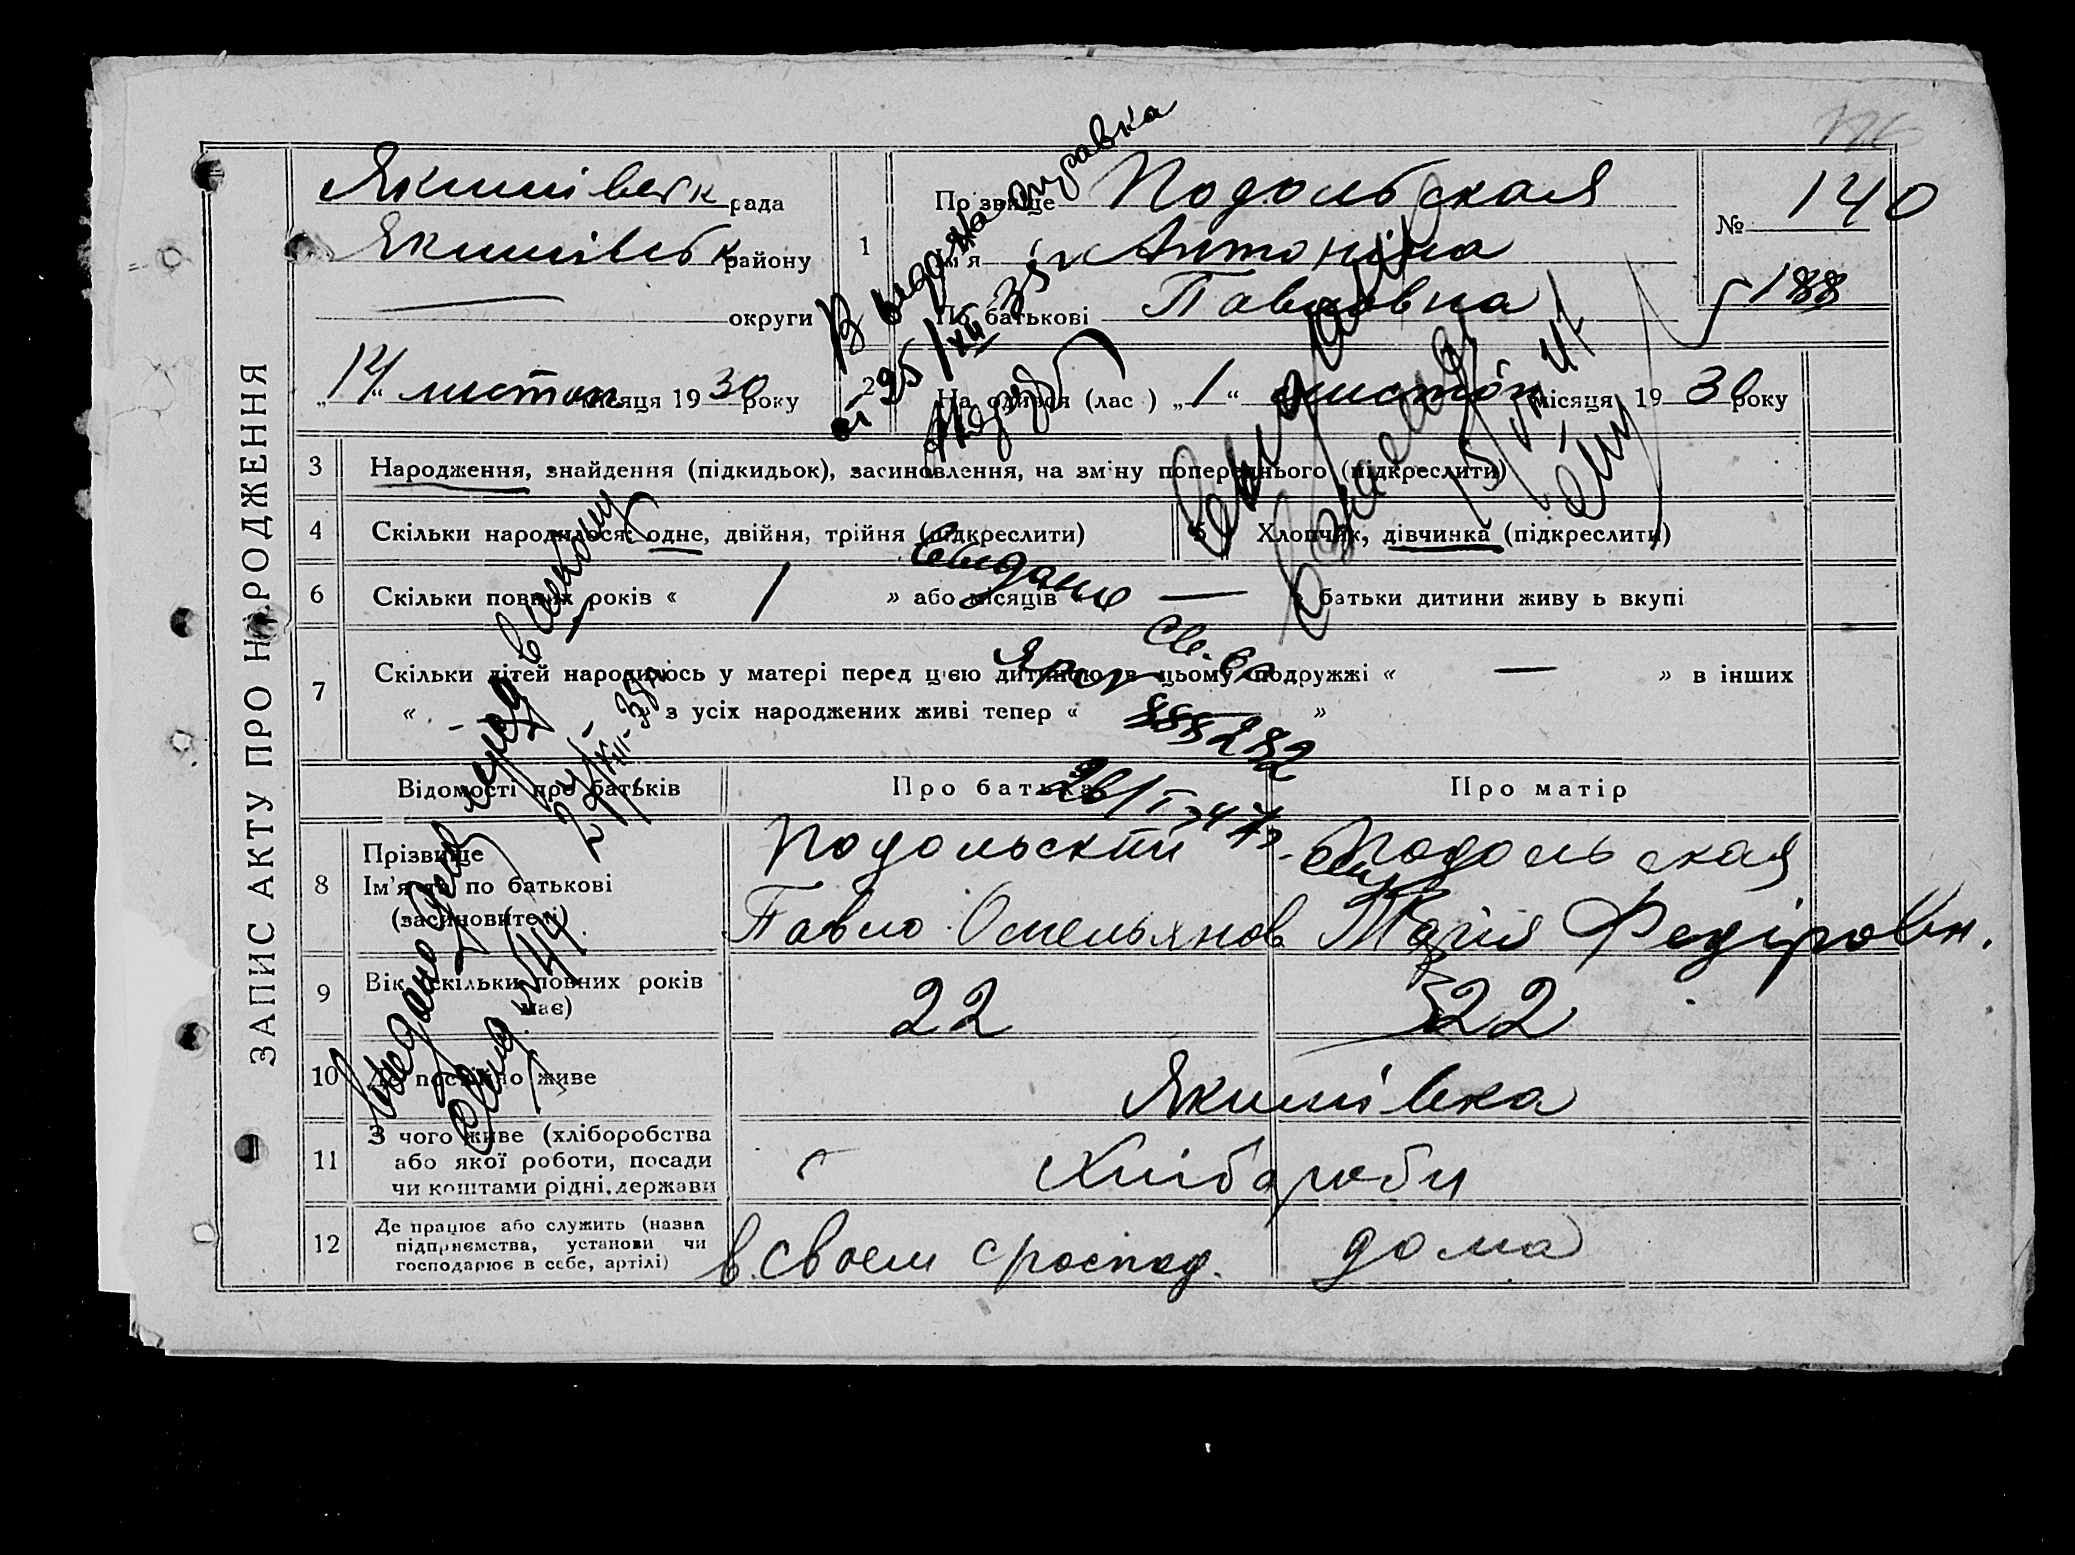 ЗАПИС АКТУ ПРО НАРОДЖЕННЯ
Якимівськ рада
Якимівськ району
округи
„14“ листоп місяця 1930 року
1 Прізвище Подольская
Ім'я Антоніна
По батькові Павловна
№ 140
188
2 На одився (лас ) „1“ листоп місяця 1930 року
3 Народження, знайдення (підкидьок), засиновлення, на зміну попереднього (підкреслити)
4 Скільки народилося: одне, двійня, трійня (підкреслити)
5 Хлопчик, дівчинка (підкреслити)
6 Скільки повних років « 1 » або місяців « — » батьки дитини живу ь вкупі
7 Скільки дітей народилось у матері перед цією дитиною в цьому подружжі « — » в інших
« - » з усіх народжених живі тепер « »
Відомості про батьків
Про батька
Про матір
8 Прізвище
Ім'я та по батькові
(засиновителі)
Подольский
Павло Омельянов
Подольская
Марія Федіровн.
9 Вік (скільки повних років
має)
22
22
10 Де постійно живе
Якимівка
11 З чого живе (хліборобства
або якої роботи, посади
чи коштами рідні, держави
Хліборуби
12 Де працює або служить (назва
підприємства, установи чи
господарює в себе, артілі)
в своем
дома
Видана справка
25/XII 35 г